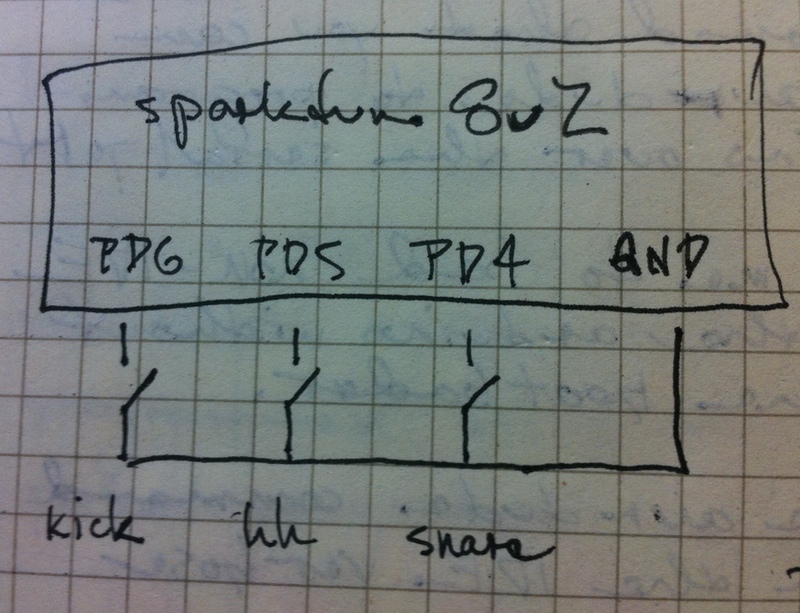 sparkfun 8u2
PD6 PD5 PD4 GND
kick hh snare